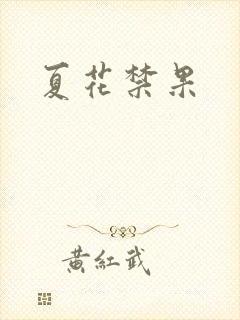 夏花禁果
黄紅武